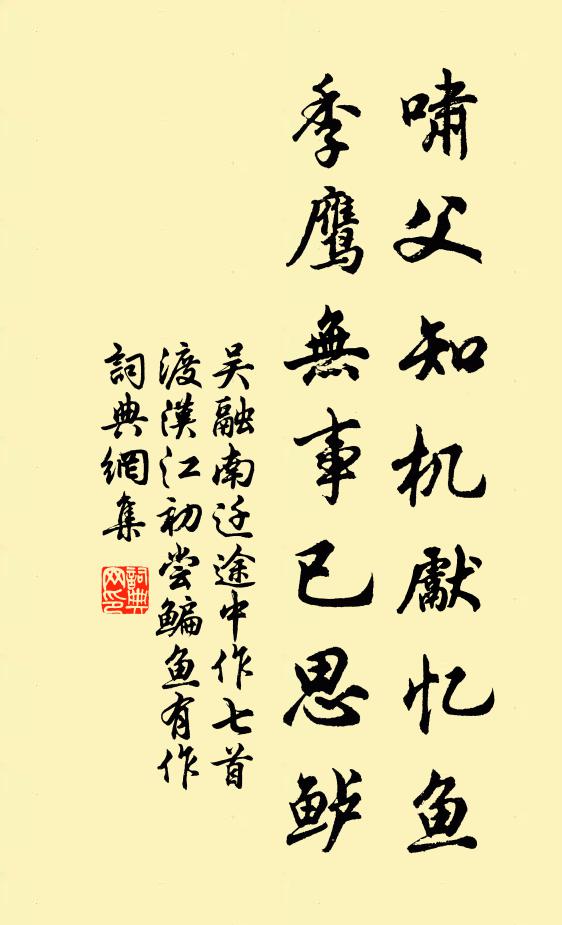 嘯父知机獻忆鱼
季鹰無事已思鲈
吴融南迁途中作七首
渡漢江初尝鳊鱼有作
詞典網集
詞典网印